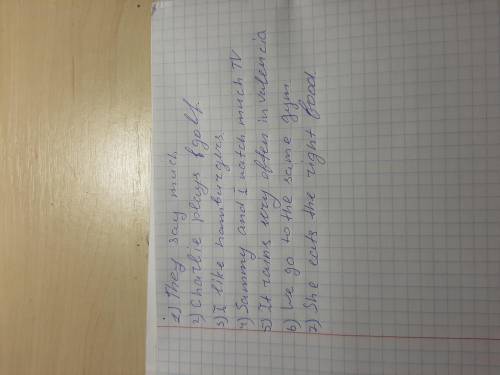 1) They say much
2) Charlie plays golf.
3) I like hamburgers
4) Sammy and I watch much TV
5) It rains very often in valencia
6) We go to the same gym
7) She eats the right food.